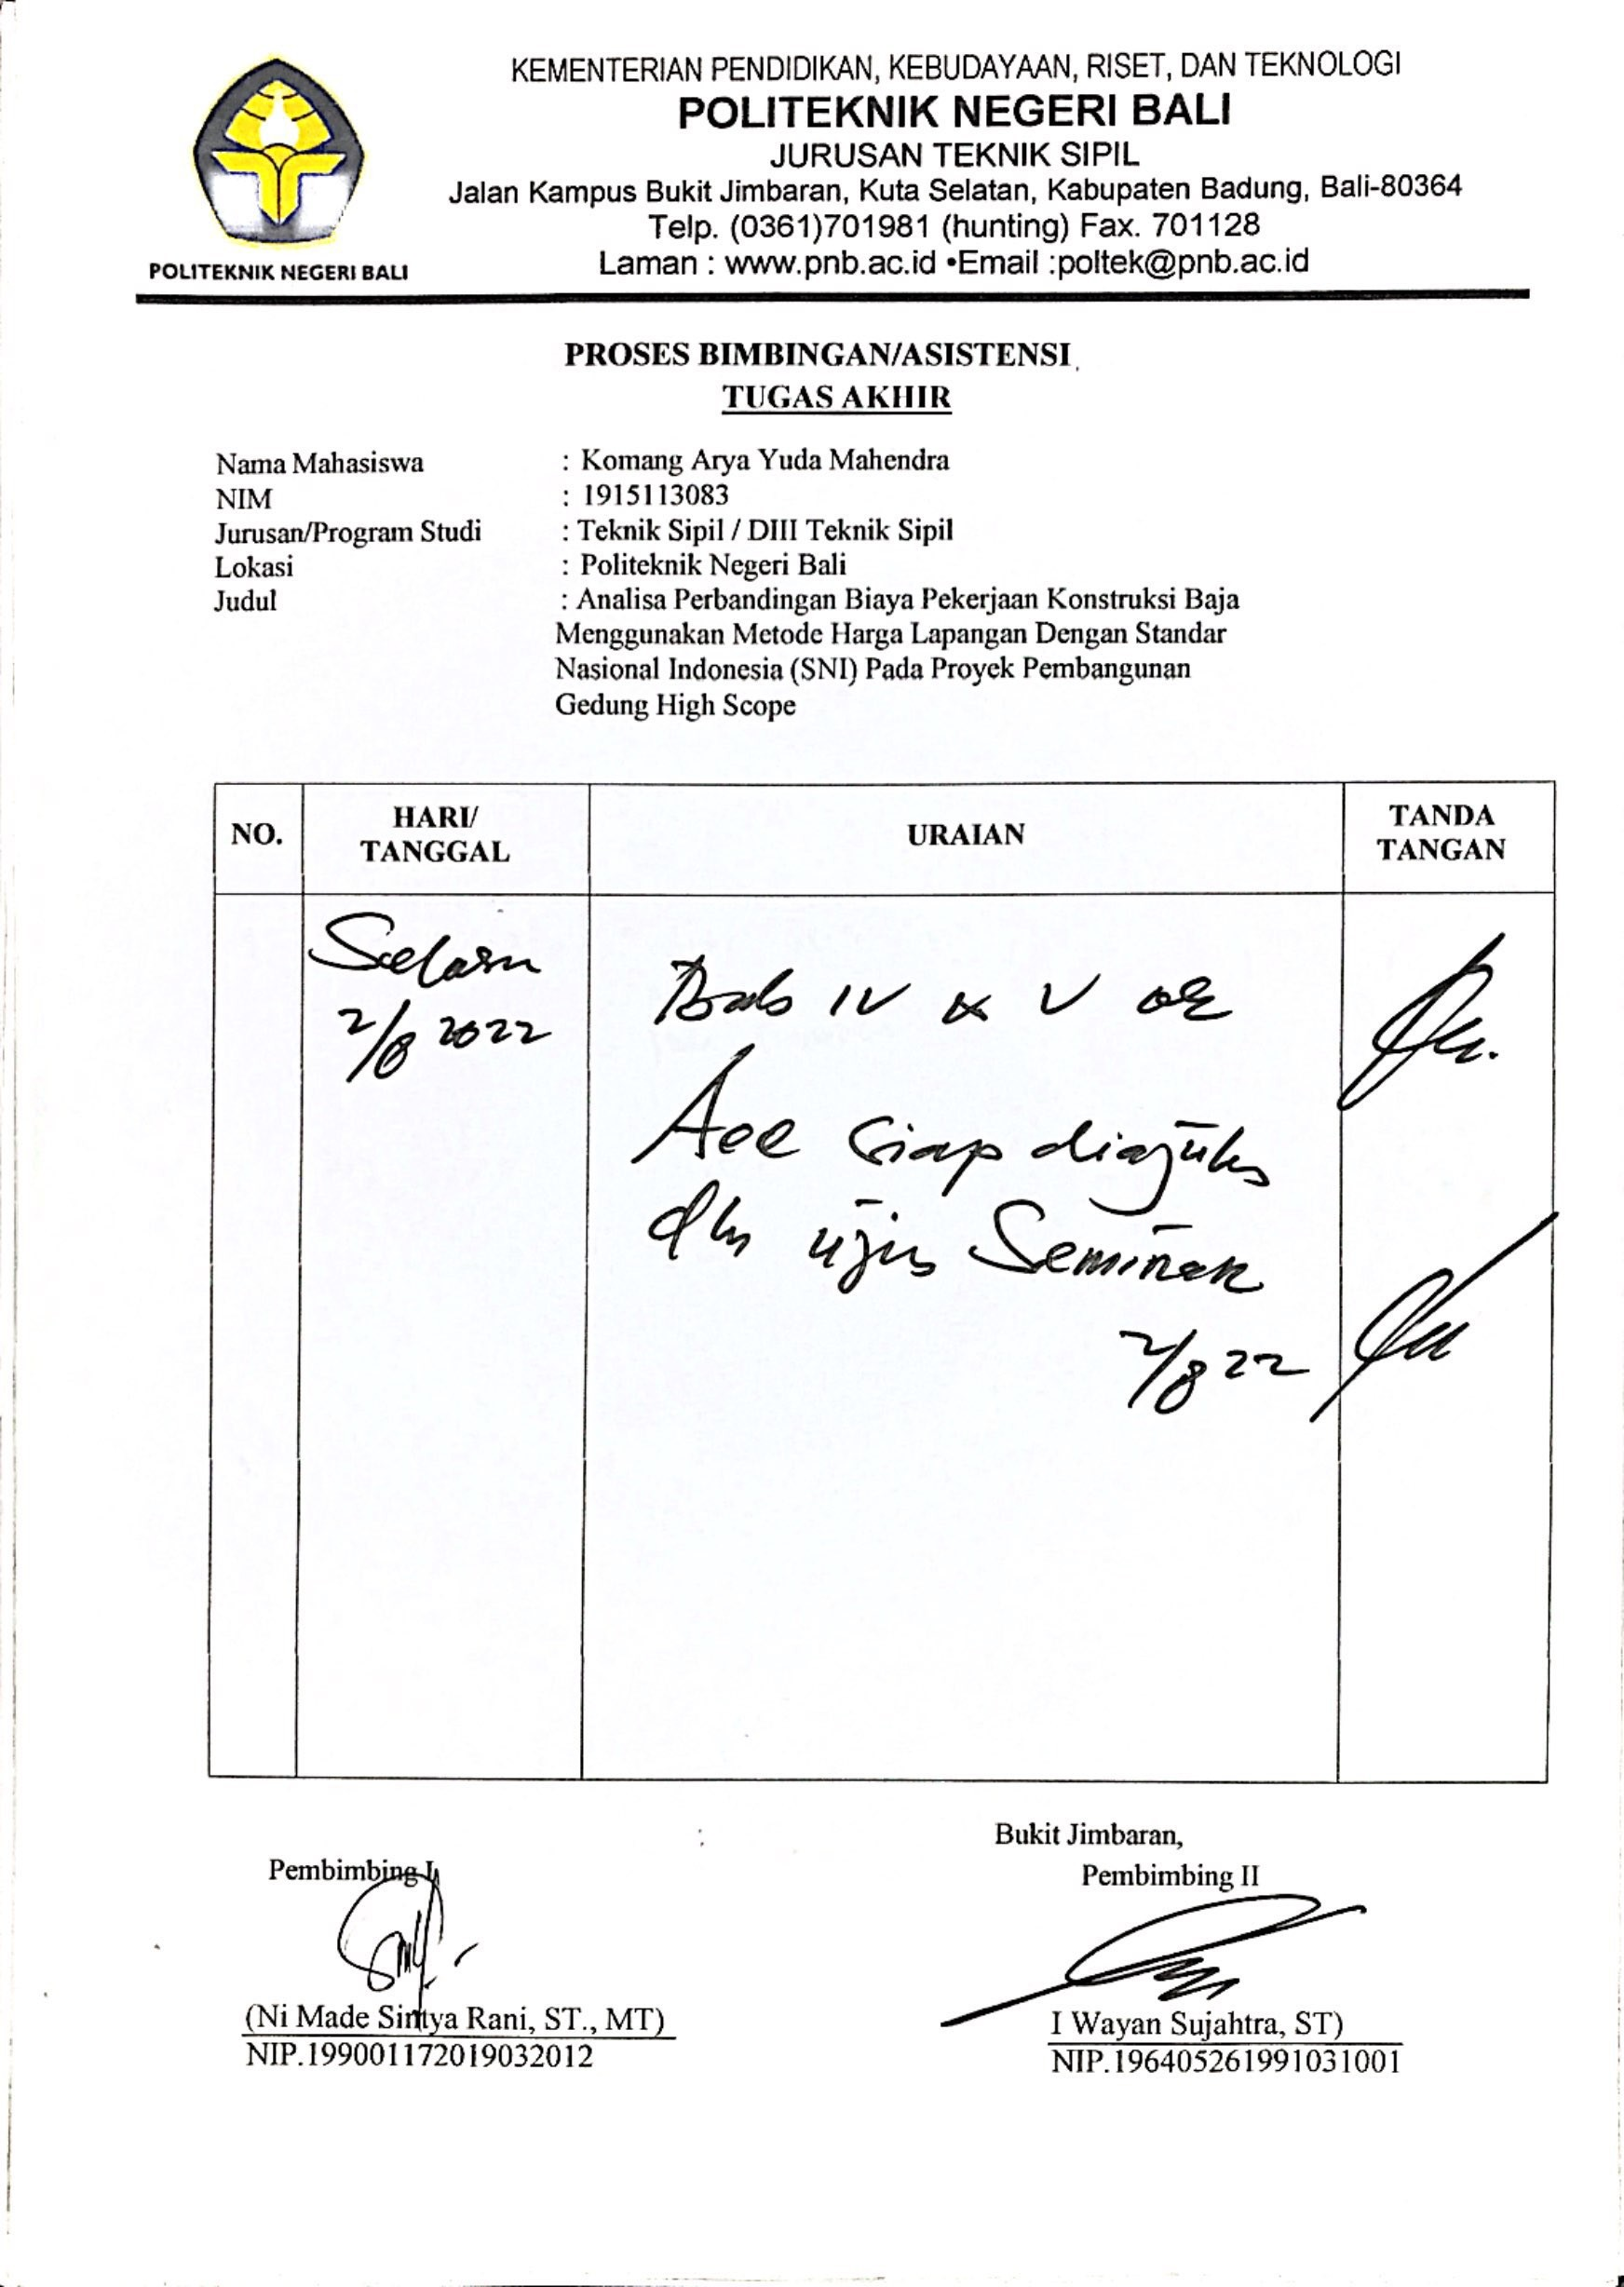 KEMENTERIAN PENDIDIKAN, KEBUDAYAAN, RISET, DAN TEKNOLOGI
POLITEKNIK NEGERI BALI
JURUSAN TEKNIK SIPIL
Jalan Kampus Bukit Jimbaran, Kuta Selatan, Kabupaten Badung, Bali-80364
Telp. (0361)701981 (hunting) Fax. 701128
Laman : www.pnb.ac.id •Email :poltek@pnb.ac.id
POLITEKNIK NEGERI BALI
PROSES BIMBINGAN/ASISTENSI
TUGAS AKHIR
Nama Mahasiswa : Komang Arya Yuda Mahendra
NIM : 1915113083
Jurusan/Program Studi : Teknik Sipil / DIII Teknik Sipil
Lokasi : Politeknik Negeri Bali
Judul : Analisa Perbandingan Biaya Pekerjaan Konstruksi Baja
Menggunakan Metode Harga Lapangan Dengan Standar
Nasional Indonesia (SNI) Pada Proyek Pembangunan
Gedung High Scope
NO. HARI/ TANGGAL URAIAN TANDA TANGAN
Selasa
2/8 2022
Bab IV & V ok
Acc siap diajukan
dlm ujian Seminar
2/8 22
Bukit Jimbaran,
Pembimbing I, Pembimbing II
(Ni Made Sintya Rani, ST., MT) I Wayan Sujahtra, ST)
NIP.199001172019032012 NIP.196405261991031001